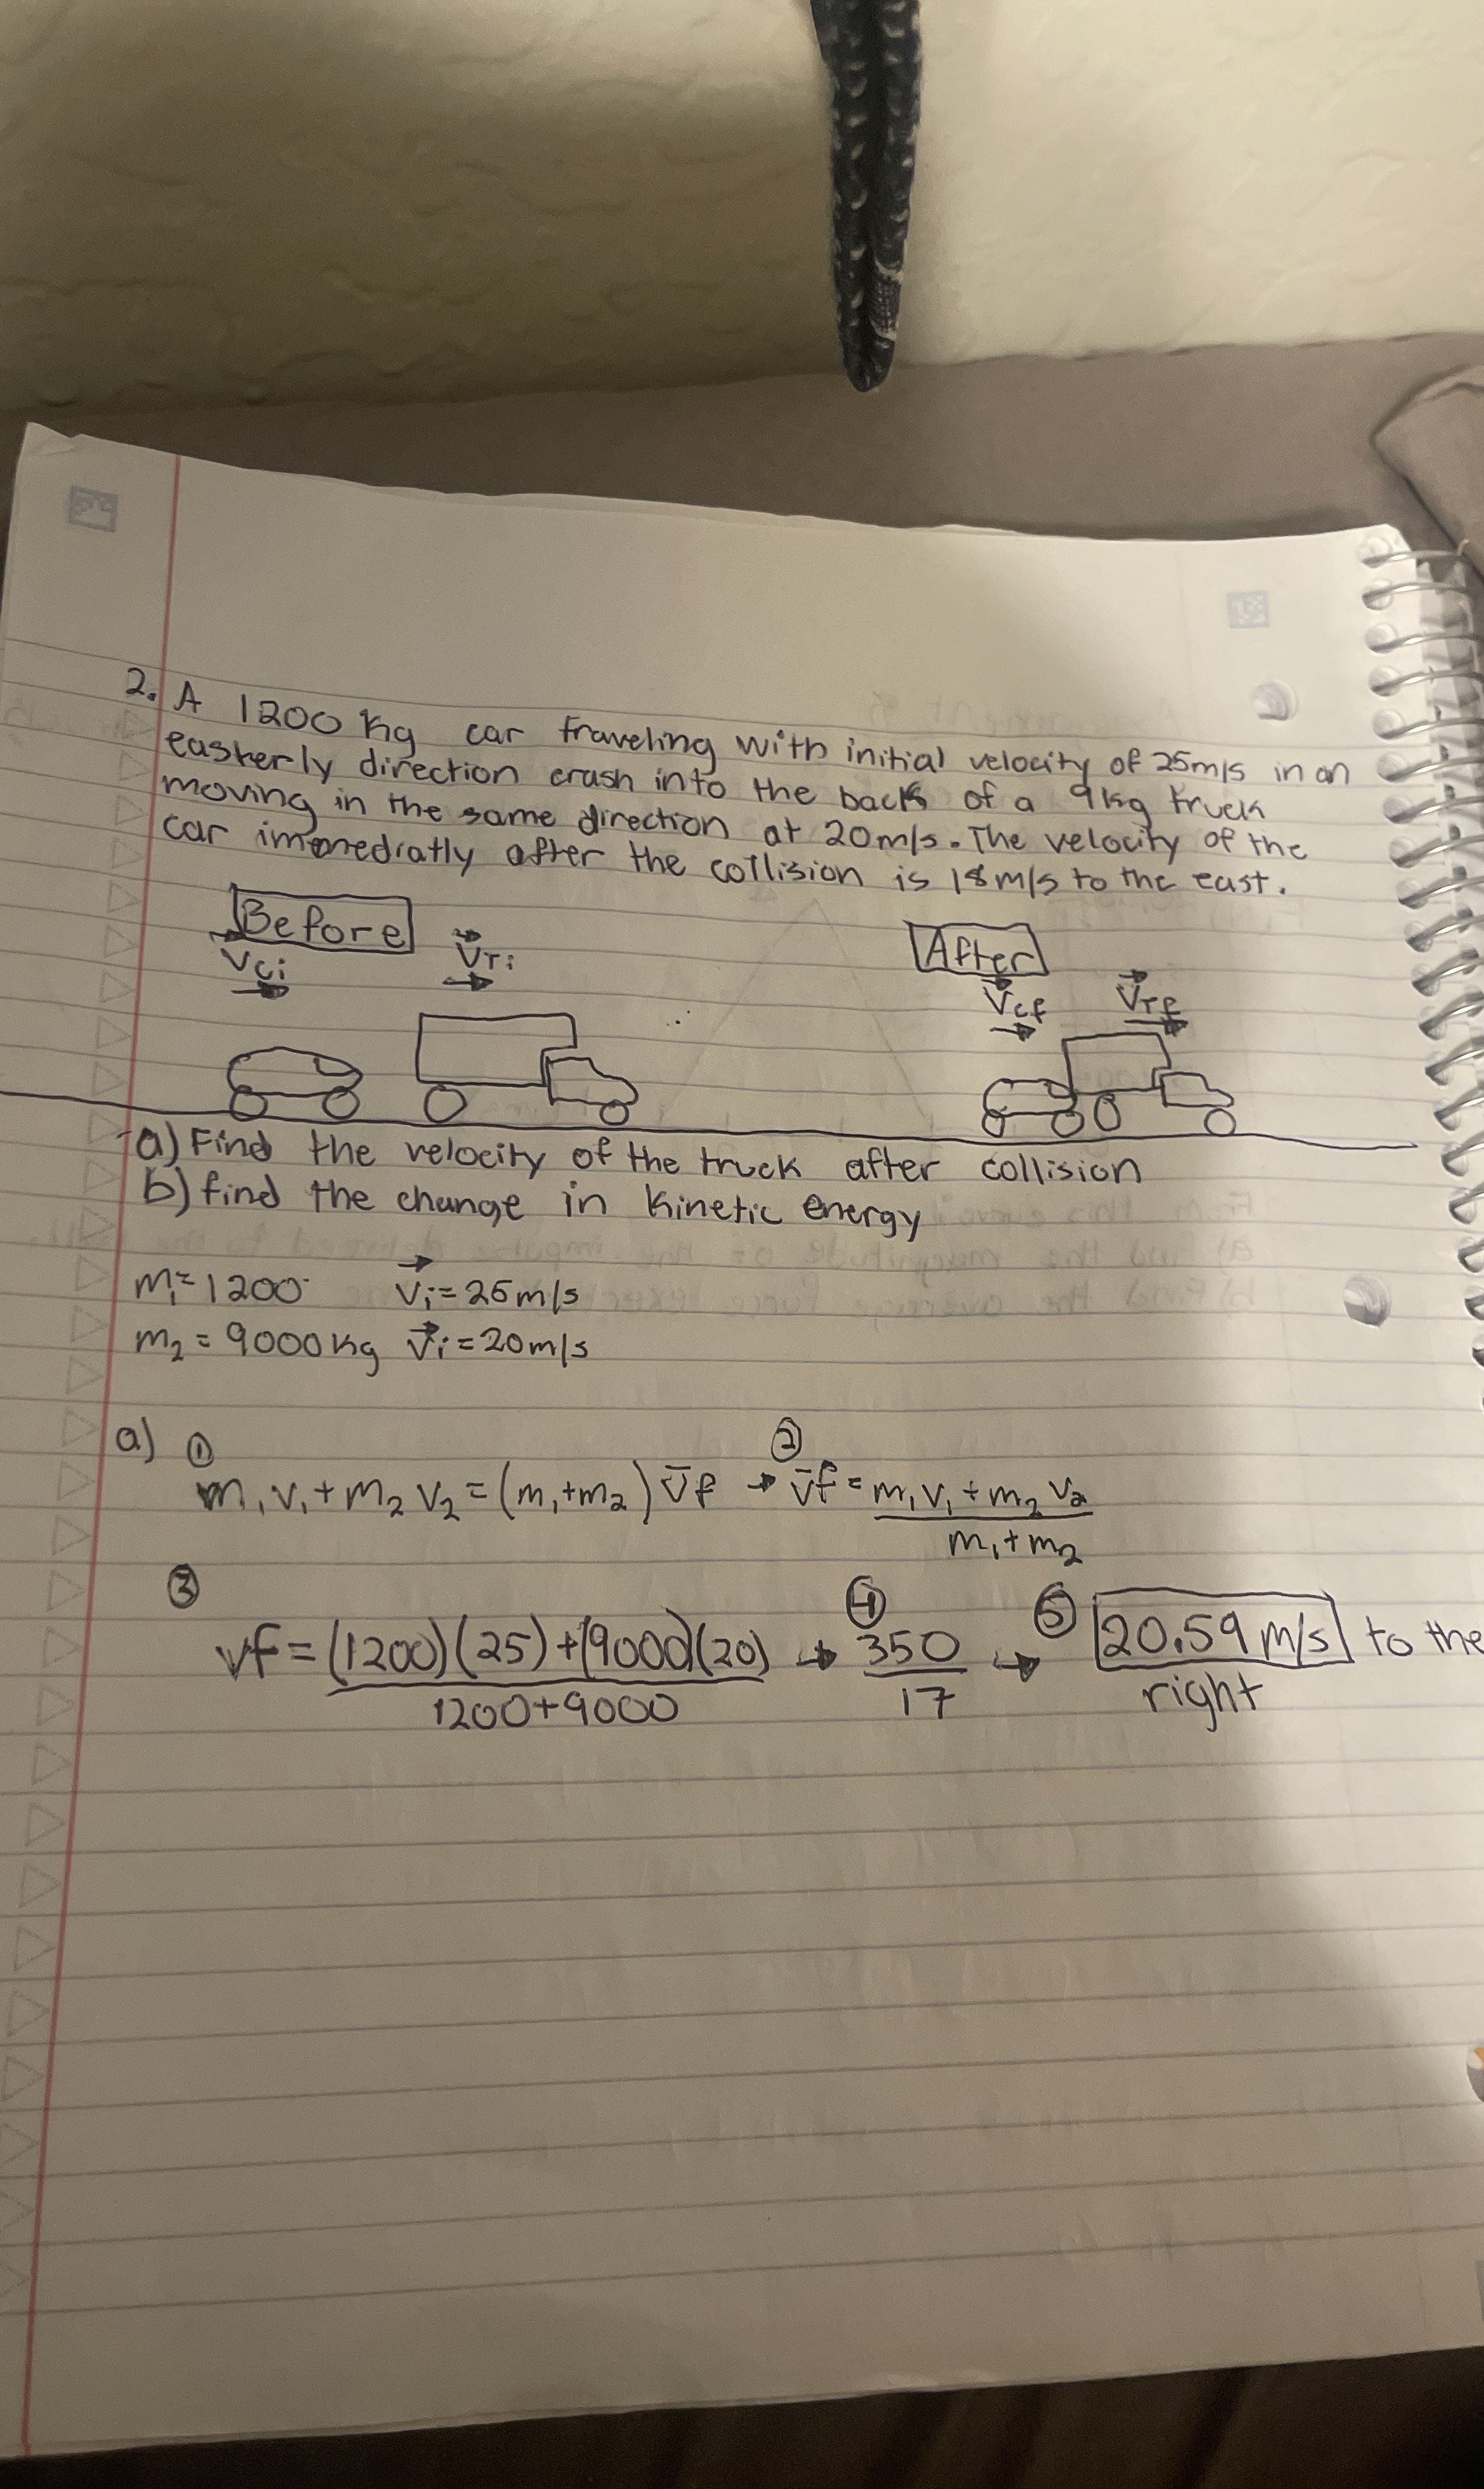 2. A 1200 kg car traveling with initial velocity of 25m/s in an
easterly direction crash into the back of a 9kg truck
moving in the same direction at 20m/s. The velocity of the
car immediatly after the collision is 18m/s to the east.
Before
After
Vci VTi
Vcf VTf
a) Find the velocity of the truck after collision
b) find the change in kinetic energy
m₁=1200 Vi=25m/s
m₂=9000kg Vi=20m/s
a) ① ②
m₁v₁+m₂v₂=(m₁+m₂)v̄f → v̄f=m₁v₁+m₂v₂
m₁+m₂
③ ④ ⑤
vf=(1200)(25)+(9000)(20) → 350 → 20.59 m/s to the
1200+9000 17 right